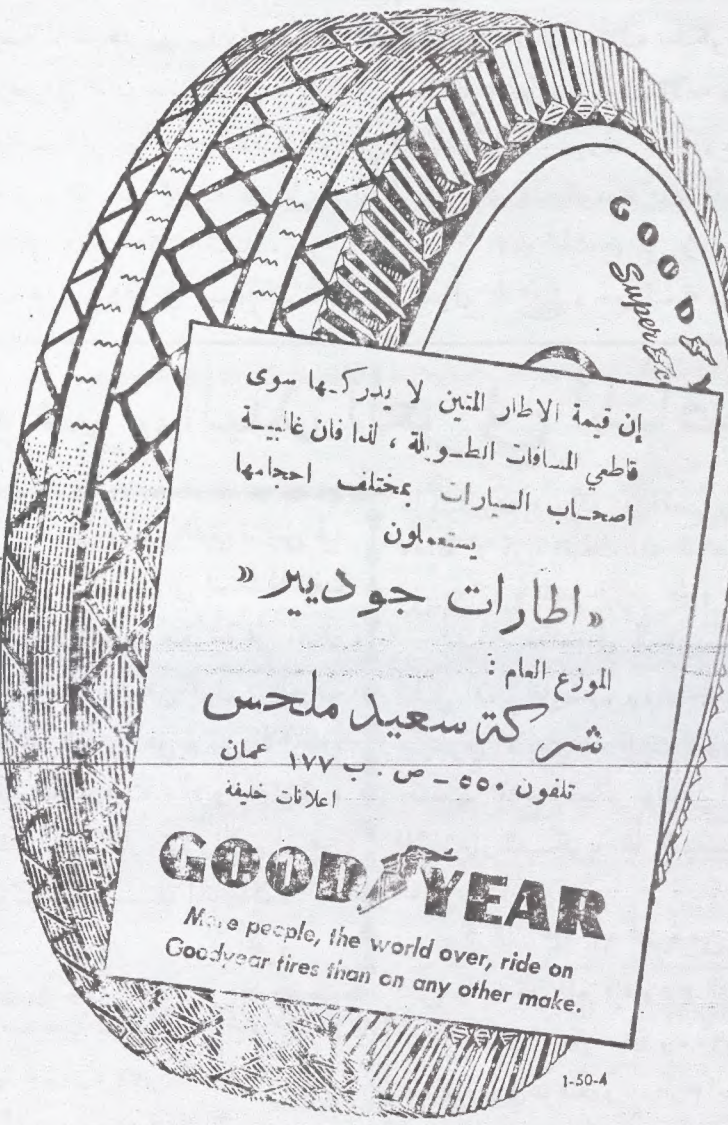 GOODY
Super
إن قيمة الاطار المتين لا يدركها سوى
قاطعي المسافات الطويلة ، لذا فان غالبية
اصحاب السيارات بمختلف احجامها
يستعملون
« اطارات جوديير »
الموزع العام :
شركة سعيد ملحس
تلفون ٥٥٠ ـ ص . ب ١٧٧ عمان
اعلانات خليفه
GOODYEAR
More people, the world over, ride on
Goodyear tires than on any other make.
1-50-4